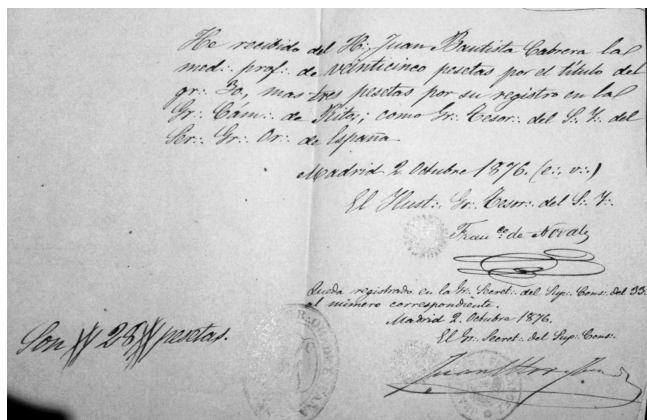 He recibido del H∴ Juan Bautista Cabrera la
med∴ prof∴ de veinticinco pesetas por el título del
gr∴ 30, mas tres pesetas por su registro en la
Gr∴ Cám∴ de Ritos; como Gr∴ Tesor∴ del S∴ Y∴ del
Ser∴ Gr∴ Or∴ de España.
Madrid 2 Octubre 1876. (e∴ v∴)
El Ilust∴ Gr∴ Tesor∴ del S∴ Y∴
Fran.co de
Queda registrado en la Gr∴ Secret∴ del Sup∴ Cons∴ del 33
al número correspondiente.
Madrid 2 Octubre 1876.
El Gr∴ Secret∴ del Sup∴ Cons∴
Son 28 pesetas.
Juan